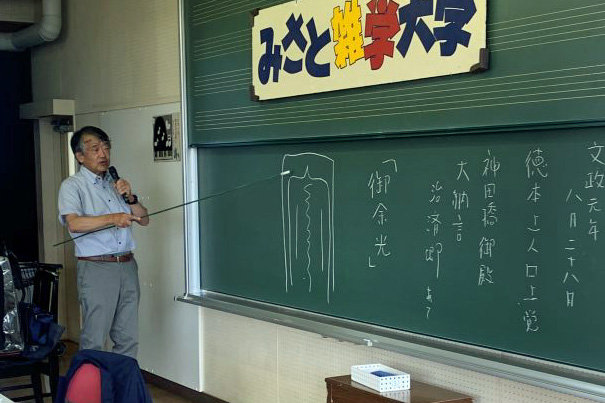 みさと雑学大学
文政元年
八月二十八日
徳本上人口上覚
神田橋御殿
大納言
治済卿
「御余光」